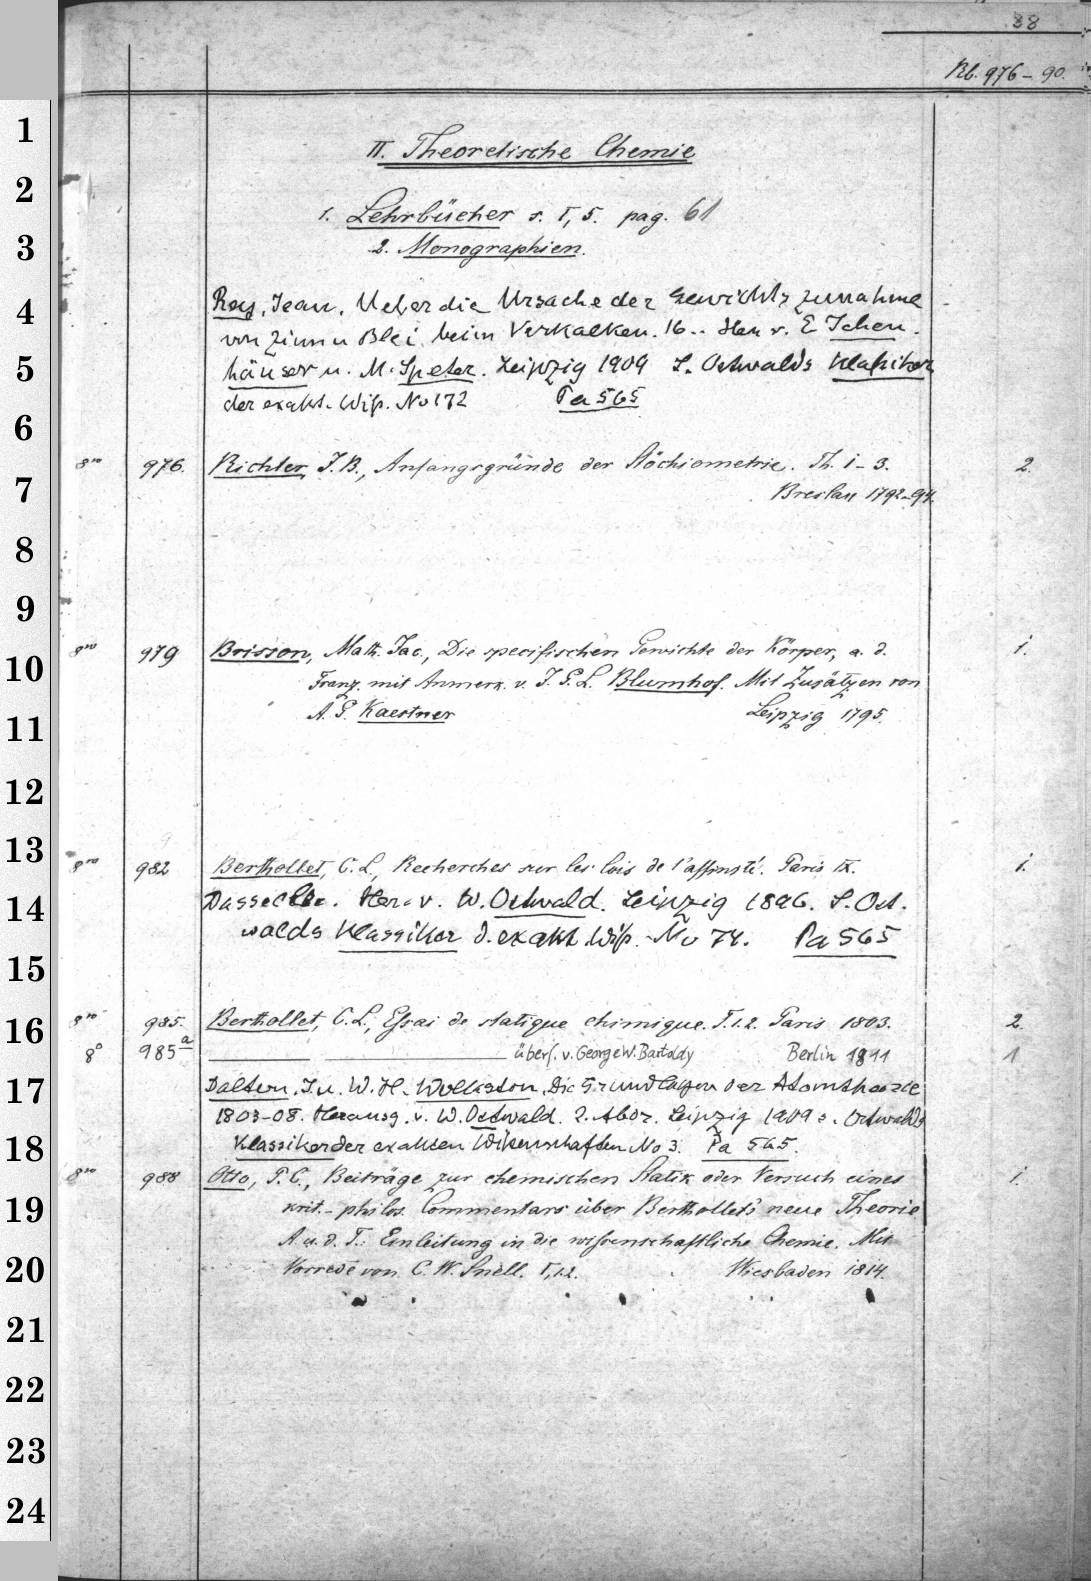 38
Rb. 976 - 90.
II. Theoretische Chemie
1. Lehrbücher s. I, 5. pag. 61
2. Monographien.
Rey, Jean, Ueber die Ursache der Gewichtszunahme
von Zinn u Blei beim Verkalken. 16.. Her. v. E Ichen.
häuser u. M. Speter. Leipzig 1909 S. Ostwalds Klaßiker
der exakt. Wiß. No 172 Pa 565
8vo 976. Richter, J. B., Anfangsgründe der Stöchiometrie. Th. 1-3. 2.
Breslau 1792-94.
8vo 979 Brisson, Math. Jac., Die specifischen Gewichte der Körper, a. d. 1.
Franz. mit Anmerk. v. J. G. L. Blumhof. Mit Zusätzen von
A. G. Kaestner Leipzig 1795.
9
8vo 982 Berthollet, C. L., Recherches sur les lois de l'affinité. Paris IX. 1.
Dasselbe. Her. v. W. Ostwald. Leipzig 1896. S. Ost.
walds Klassiker d. exakt. Wiß. No 74. Pa 565
8vo 985. Berthollet, C. L., Essai de statique chimique. T. 1.2. Paris 1803. 2.
8° 985a übers. v. George W. Bartoldy Berlin 1811 1
Dalton, J. u. W. H. Wollaston, Die Grundlagen der Atomtheorie
1803-08. Herausg. v. W. Ostwald. 2. Abdr. Leipzig 1909 s. Ostwalds
Klassiker der exakten Wißenschaften No 3. Pa 565.
8vo 988 Otto, F. C., Beiträge zur chemischen Statik oder Versuch eines 1.
krit.-philos. Commentars über Berthollet's neue Theorie
A. u. d. T.: Einleitung in die wissenschaftliche Chemie. Mit
Vorrede von C. W. Snell. T. 1.2. Wiesbaden 1814.
1
2
3
4
5
6
7
8
9
10
11
12
13
14
15
16
17
18
19
20
21
22
23
24